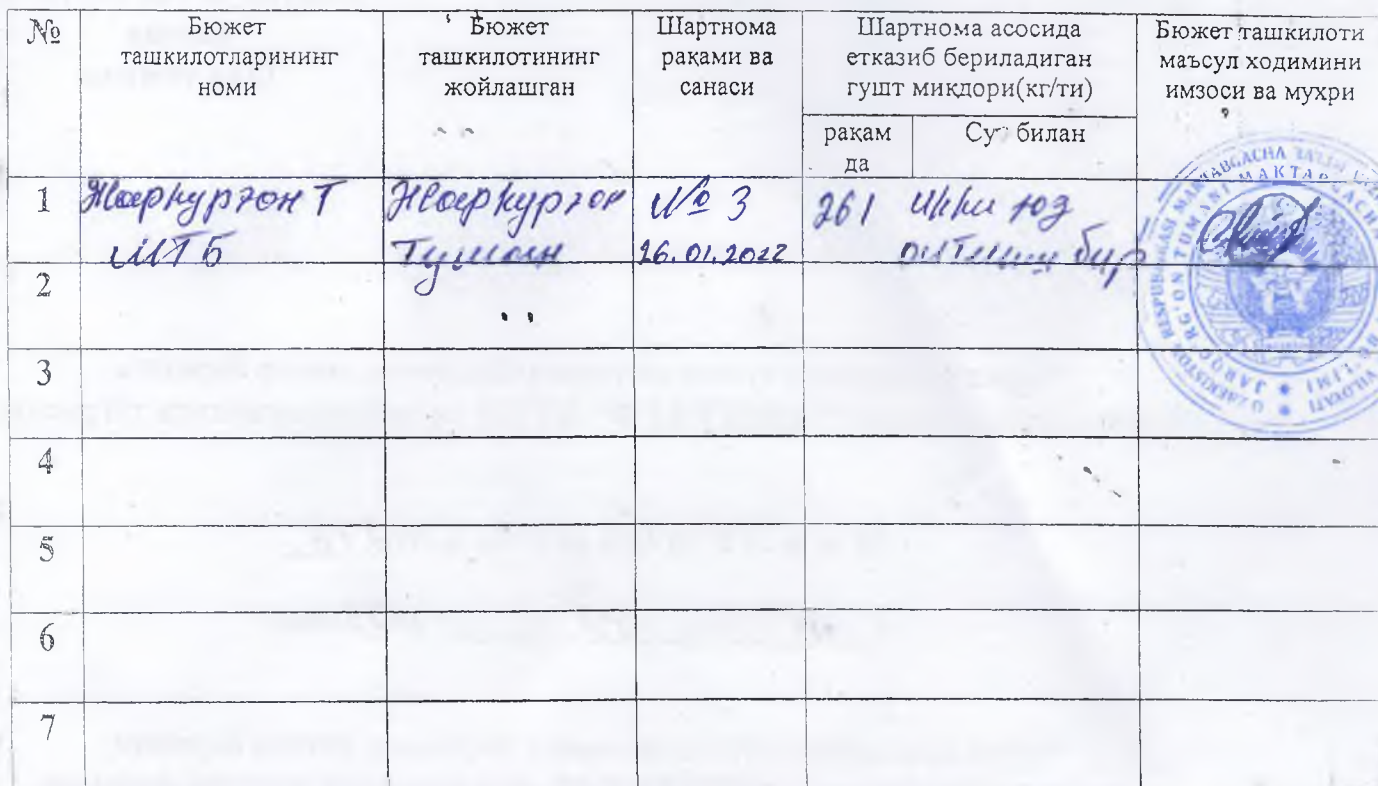 №
Бюжет
ташкилотларининг
номи
Бюжет
ташкилотининг
жойлашган
Шартнома
рақами ва
санаси
Шартнома асосида
етказиб бериладиган
гушт микдори(кг/ти)
рақам
да
Суз билан
Бюжет ташкилоти
маъсул ходимини
имзоси ва мухри
1
Жаркурғон Т
МТБ
Жаркурғон
Туман
№ 3
26.01.2022
261
икки юз
олтмиш бир
2
3
4
5
6
7